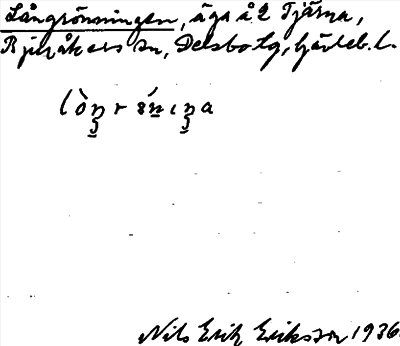 Långrönningen, äga å 2 Tjärna,
Bjuråkers sn, Delsbo tg, Gävleb. l.
Nils Erik Eriksson 1936